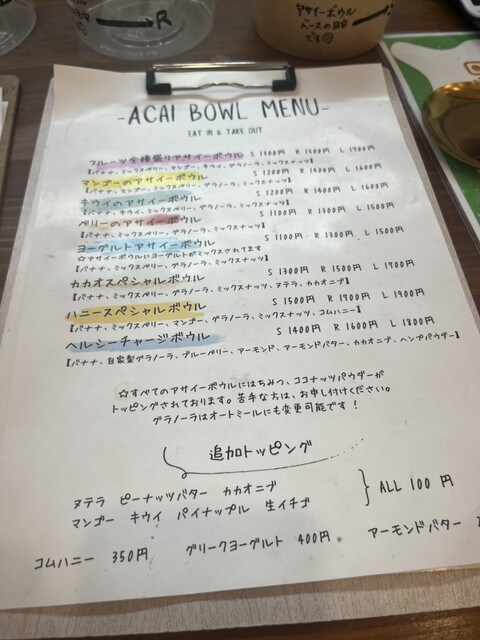 R
アサイーボウル
ベースの目安
です
-ACAI BOWL MENU-
EAT IN & TAKE OUT
フルーツ全種盛りアサイーボウル S 1300円 R 1500円 L 1700円
【バナナ、ミックスベリー、マンゴー、キウイ、グラノーラ、ミックスナッツ】
マンゴーのアサイーボウル S 1200円 R 1400円 L 1600円
【バナナ、マンゴー、ミックスベリー、グラノーラ、ミックスナッツ】
キウイのアサイーボウル S 1200円 R 1400円 L 1600円
【バナナ、キウイ、ミックスベリー、グラノーラ、ミックスナッツ】
ベリーのアサイーボウル S 1100円 R 1300円 L 1500円
【バナナ、ミックスベリー、グラノーラ、ミックスナッツ】
ヨーグルトアサイーボウル S 1100円 R 1300円 L 1500円
☆アサイーボウルにヨーグルトがミックスされてます
【バナナ、ミックスベリー、グラノーラ、ミックスナッツ】
カカオスペシャルボウル S 1300円 R 1500円 L 1700円
【バナナ、ミックスベリー、グラノーラ、ミックスナッツ、ヌテラ、カカオニブ】
ハニースペシャルボウル S 1500円 R 1700円 L 1900円
【バナナ、ミックスベリー、マンゴー、グラノーラ、ミックスナッツ、コムハニー】
ヘルシーチャージボウル S 1400円 R 1600円 L 1800円
【バナナ、自家製グラノーラ、ブルーベリー、アーモンド、アーモンドバター、カカオニブ、ヘンプパウダー】
☆すべてのアサイーボウルにはちみつ、ココナッツパウダーが
トッピングされております。苦手な方は、お申し付けください。
グラノーラはオートミールにも変更可能です！
追加トッピング
ヌテラ ピーナッツバター カカオニブ
マンゴー キウイ パイナップル 生イチゴ
ALL 100 円
コムハニー 350円 グリークヨーグルト 400円 アーモンドバター